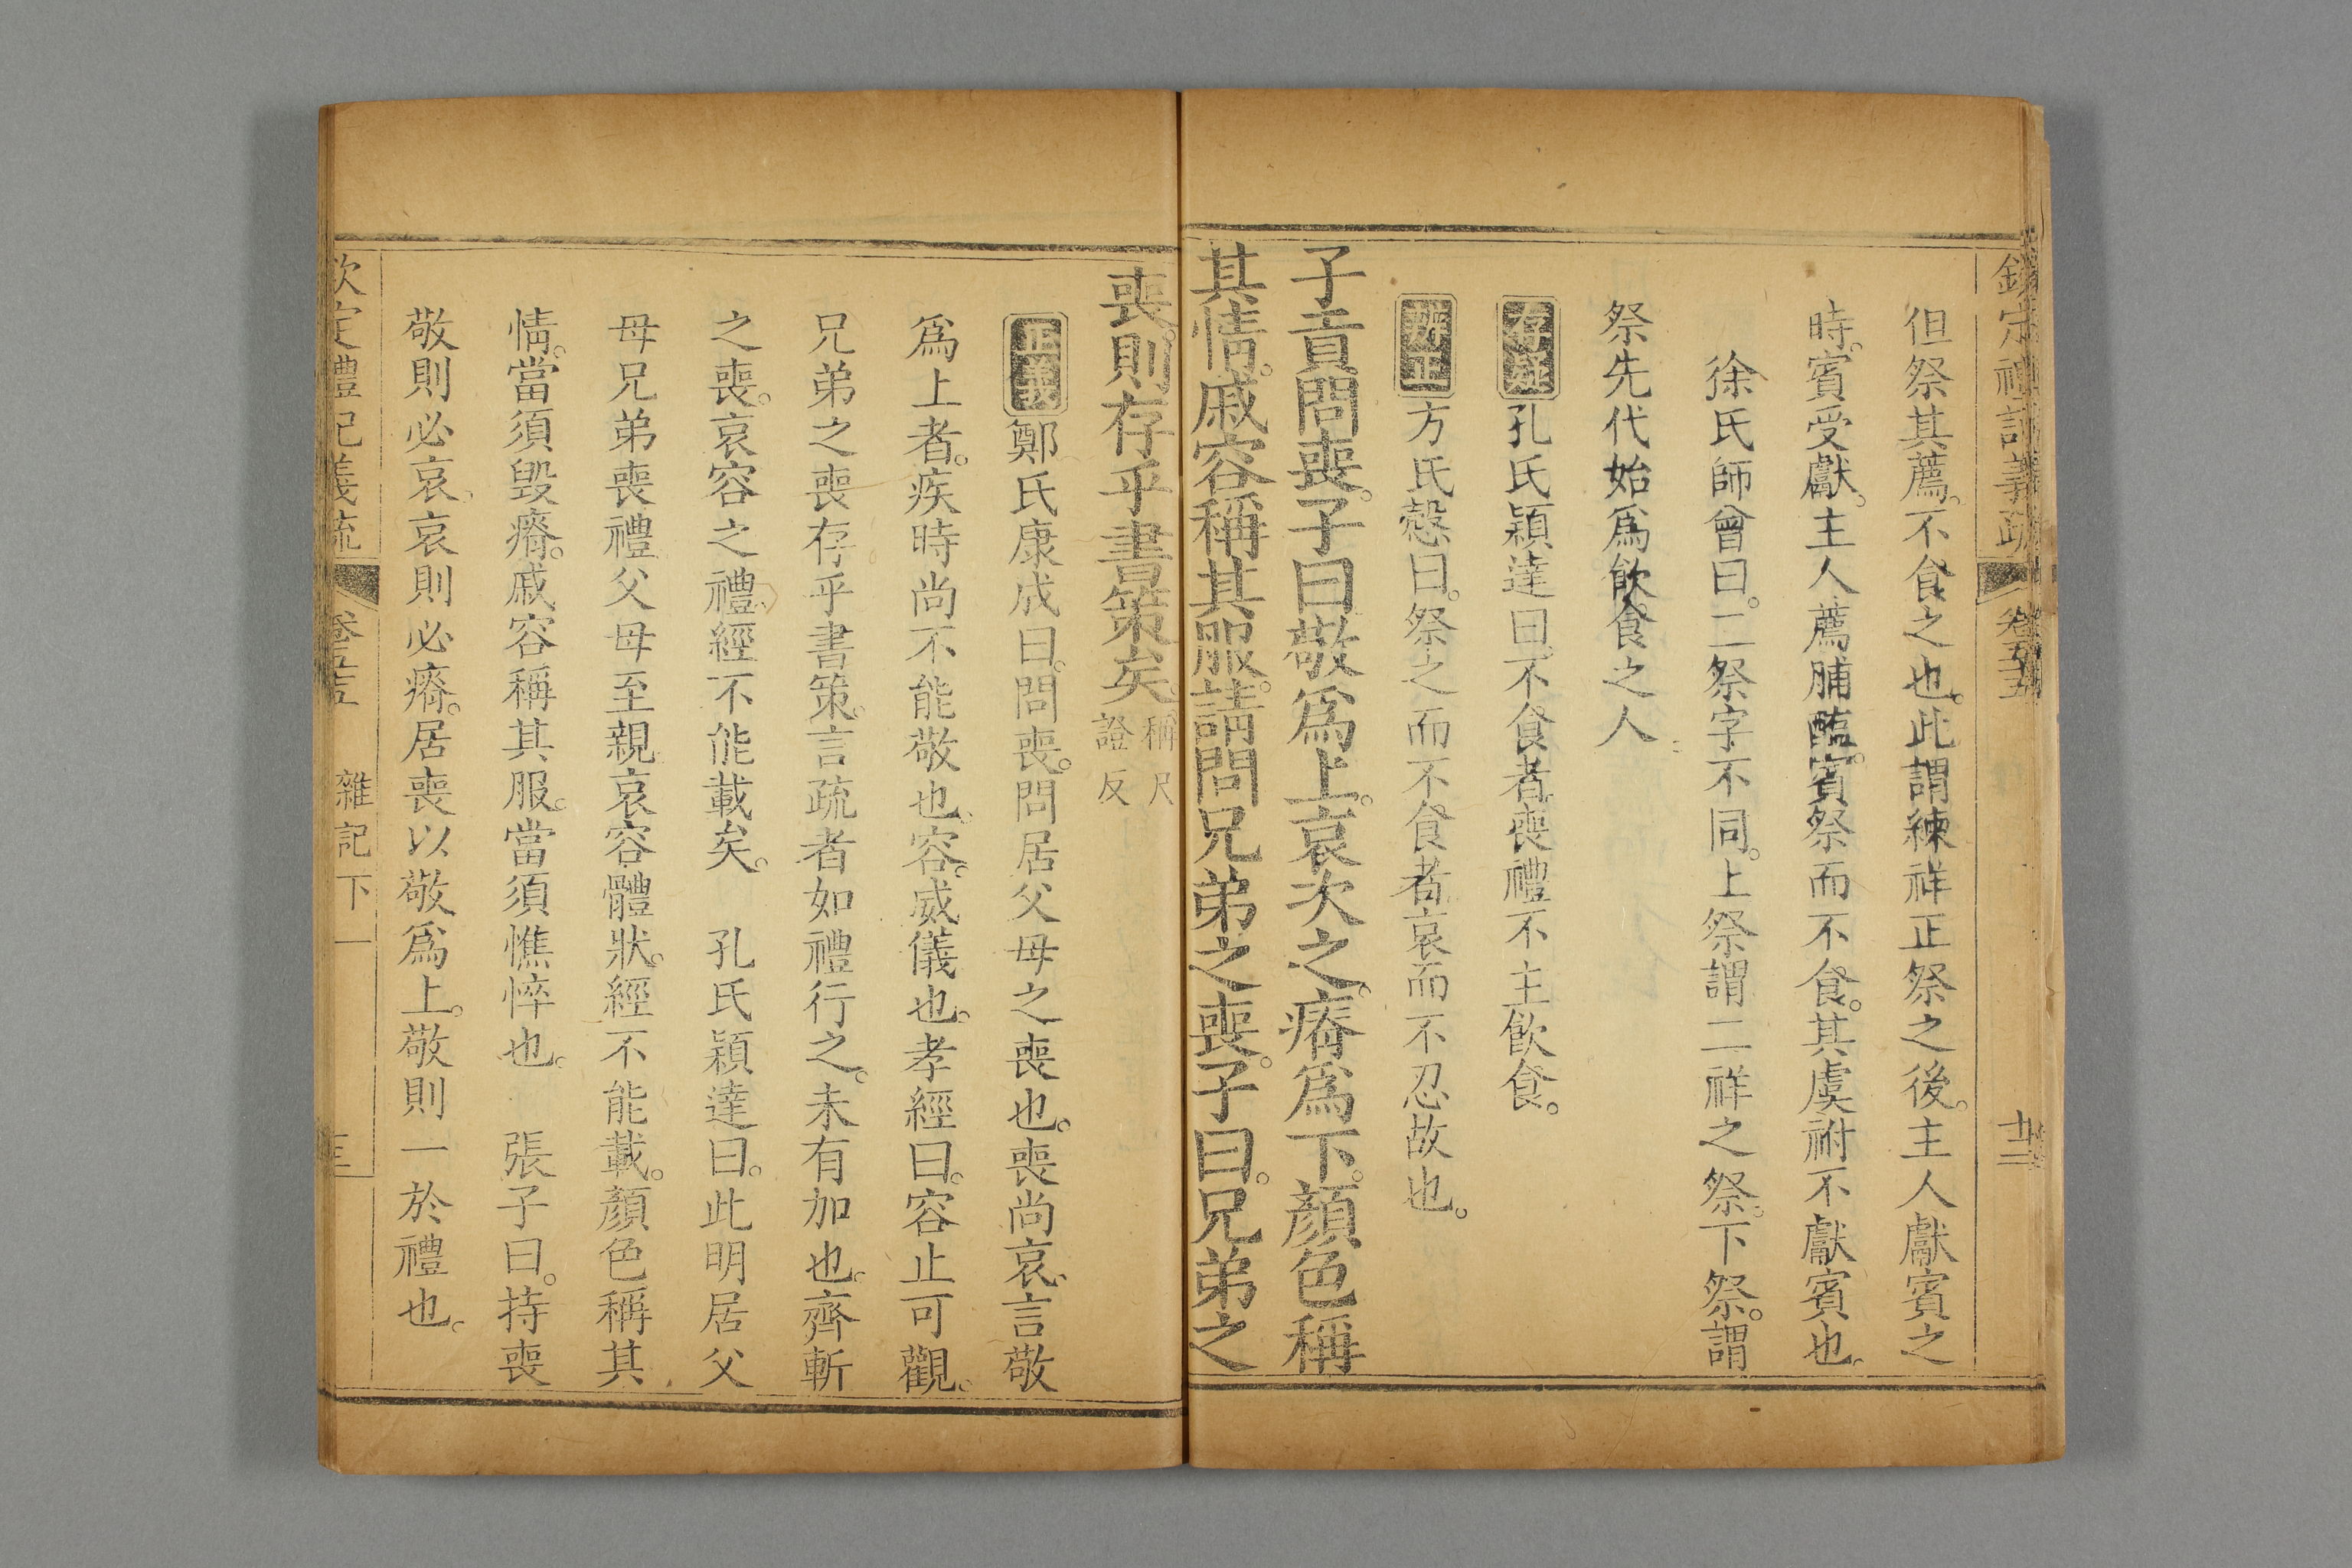 欽定禮記義疏 卷五十五 十二
但祭其薦。不食之也。此謂練祥正祭之後。主人獻賓之
時。賓受獻。主人薦脯醢。賓祭而不食。其虞祔不獻賓也。
徐氏師曾曰。二祭字不同。上祭謂二祥之祭。下祭。謂
祭先代始爲飲食之人
存疑 孔氏穎達曰。不食者。喪禮不主飲食。
辨正 方氏慤曰。祭之而不食者。哀而不忍故也。
子貢問喪。子曰敬爲上。哀次之。瘠爲下。顏色稱
其情。戚容稱其服。請問兄弟之喪。子曰。兄弟之
喪。則存乎書策矣。稱尺
證反
正義 鄭氏康成曰。問喪。問居父母之喪也。喪尚哀。言敬
爲上者。疾時尚不能敬也。容。威儀也。孝經曰。容止可觀。
兄弟之喪存乎書策。言疏者如禮行之。未有加也。齊斬
之喪。哀容之禮。經不能載矣。 孔氏穎達曰。此明居父
母兄弟喪禮父母至親哀容體狀。經不能載。顏色稱其
情。當須毀瘠。戚容稱其服。當須憔悴也。 張子曰。持喪
敬則必哀。哀則必瘠。居喪以敬爲上。敬則一於禮也。
欽定禮記義疏 卷五十五 雜記下一